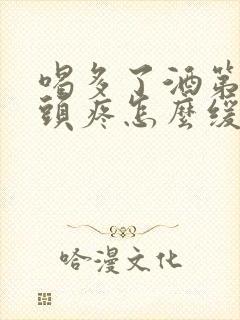 喝多了酒第
頭疼怎麼緩
哈漫文化